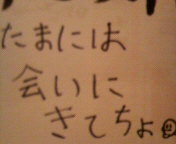 たまには
会いに
きてちょ